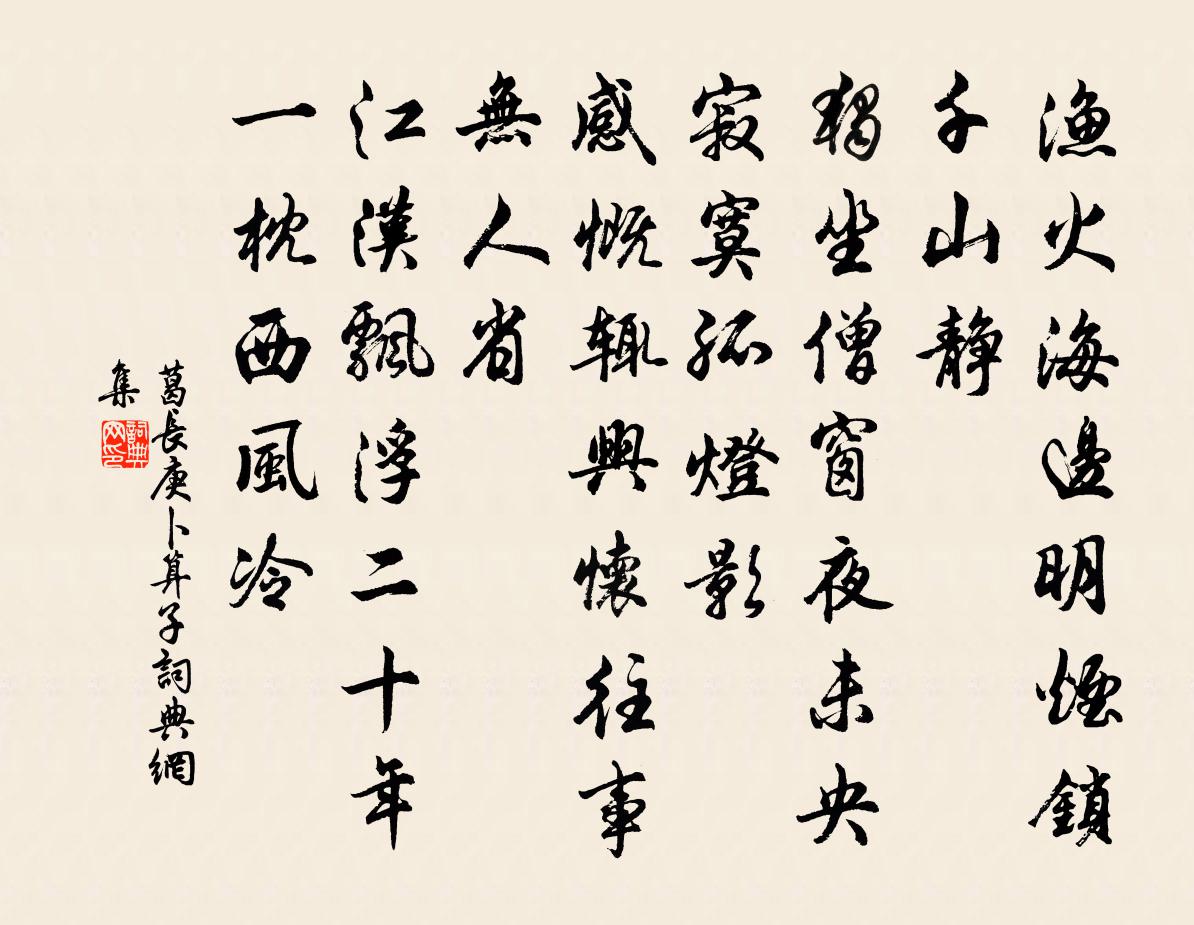 漁火海邊明煙鎖
千山靜
獨坐僧窗夜未央
寂寞孤燈影
感慨輒興懷往事
無人省
江漢飄浮二十年
一枕西風冷
葛長庚卜算子詞典網
集
詞典
网印